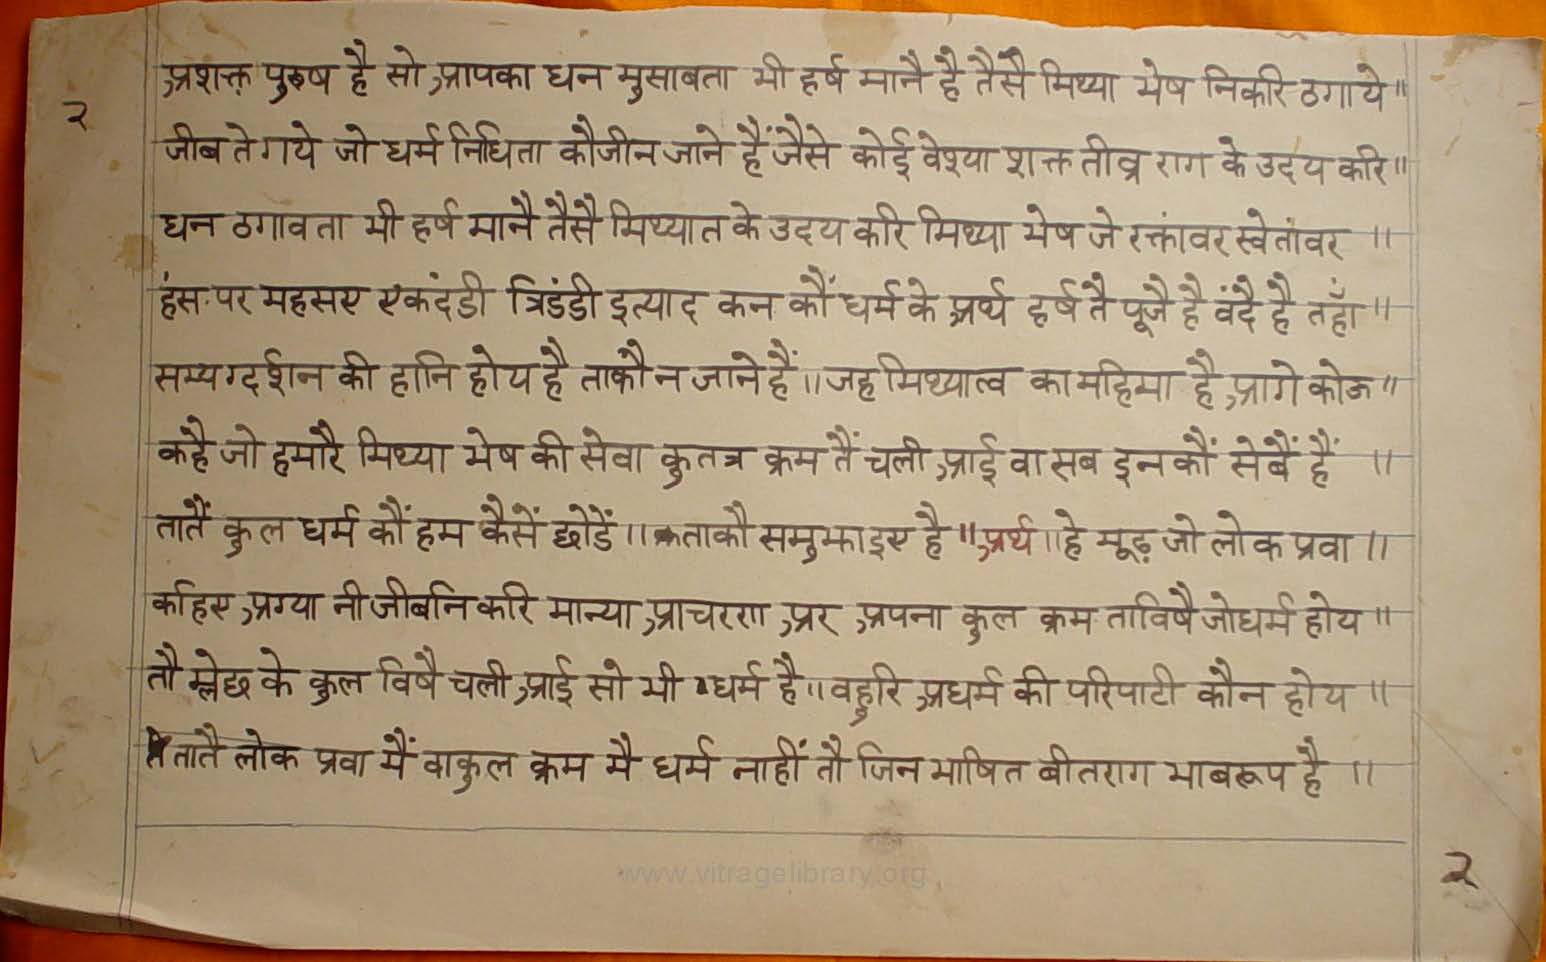 अशक्त पुरुष है सो आपका धन मुसाबता भी हर्ष मानै है तैसै मिथ्या भेष निकरि ठगाये॥
२
जीब ते गये जो धर्म निधिता कौ जीन जाने हैं जैसे कोई वेश्या शक्त तीव्र राग के उदय करि॥
धन ठगावता भी हर्ष मानै तैसै मिथ्यात के उदय करि मिथ्या भेष जे रक्तांवर स्वेतांवर ॥
हंस पर महसए एकदंडी त्रिडंडी इत्याद कन कौं धर्म के अर्थ हर्ष तै पूजै है वंदै है तहाँ॥
सम्यग्दर्शन की हानि होय है ताकौ न जाने हैं॥ जह मिथ्यात्व का महिमा है आगे कोऊ॥
कहै जो हमारै मिथ्या भेष की सेवा कुतत्र क्रम तैं चली आई वा सब इनकौं सेबैं हैं ॥
तातैं कुल धर्म कौं हम कैसें छोडें॥ ताकौ समुझाइए है॥ अर्थ॥ हे मूढ़ जो लोक प्रवा॥
कहिए अग्या नी जीबनि करि मान्या आचरण अर अपना कुल क्रम ताविषै जो धर्म होय॥
तौ म्लेछ के कुल विषै चली आई सो भी धर्म है॥ वहुरि अधर्म की परिपाटी कौन होय ॥
तातै लोक प्रवा मैं वा कुल क्रम मै धर्म नाहीं तौ जिन भाषित बीतराग भाबरूप है ॥
www.vitragelibrary.org
२